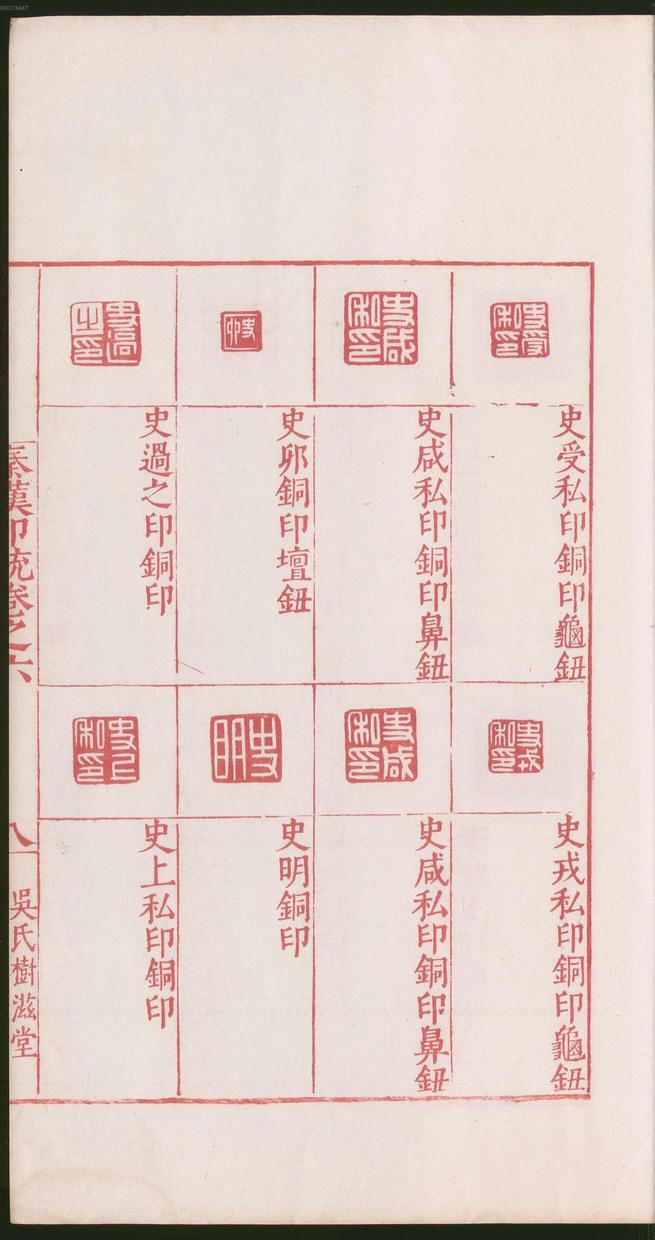 史受私印銅印龜鈕
史咸私印銅印鼻鈕
史卯銅印壇鈕
史過之印銅印
史戎私印銅印龜鈕
史咸私印銅印鼻鈕
史明銅印
史上私印銅印
秦漢印統卷之六
八
吳氏樹滋堂
00073487